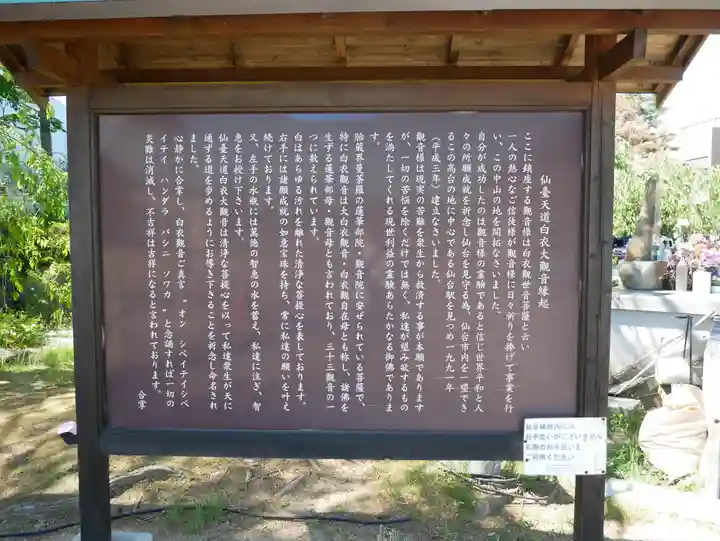 仙臺天道白衣大觀音縁起
ここに鎮座する觀音様は白衣觀世音菩薩と云い
一人の熱心なご信徒様が觀音様に日々祈りを捧げて事業を行
い、この中山の地を開拓なさいました。
自分が成功したのは觀音様の霊験であると信じ世界平和と人
々の所願成就を祈念し仙台を見守る為、仙台市内を一望でき
るこの高台の地に中心である仙台駅を見つめ一九九一年
（平成三年）建立なさいました。
觀音様は現実の苦難を衆生から救済する事が本願であります
が、一切の苦悩を除くだけでは無く、私達が望み欲するもの
を満たしてくれる現世利益の霊験あらたかなる御佛でありま
す。
胎蔵界曼荼羅の蓮華部院・觀音院に安ぜられている菩薩で、
特に白衣觀音は大白衣觀音・白衣觀自在母とも称し、諸佛を
生ずる蓮華部母・觀音母とも言われており、三十三觀音の一
つに数えられています。
白はあらゆる汚れを離れた清浄な菩提心を表しております。
右手には諸願成就の如意宝珠を持ち、常に私達の願いを叶え
続けております。
又、左手の水瓶には萬徳の智恵の水を蓄え、私達に注ぎ、智
恵をお授け下さいます。
仙臺天道白衣大觀音は清浄な菩提心を以って私達衆生が天に
通ずる道を歩めるようにお導き下さることを祈念し命名され
ました。
心静かに合掌し、白衣觀音ご真言 “オン シベイテイシベ
イテイ ハンダラ バシニ ソワカ ”と念誦すれば一切の
災難は消滅し、不吉祥は吉祥になると言われております。
合掌
お手洗いがございません
ご利用ください